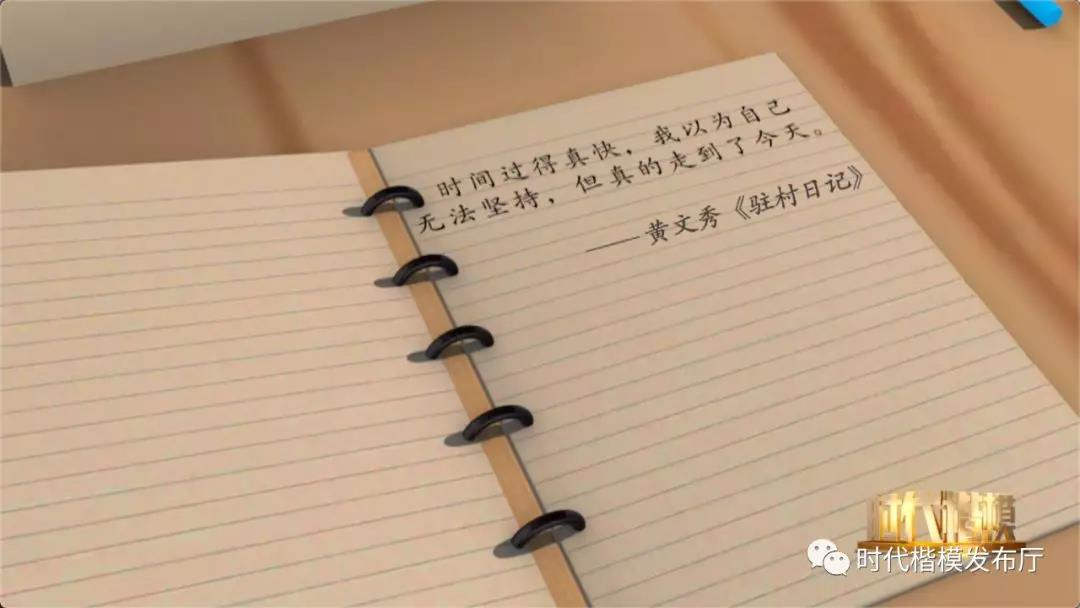 时间过得真快，我以为自己
无法坚持，但真的走到了今天。
——黄文秀《驻村日记》
时代楷模
时代楷模发布厅